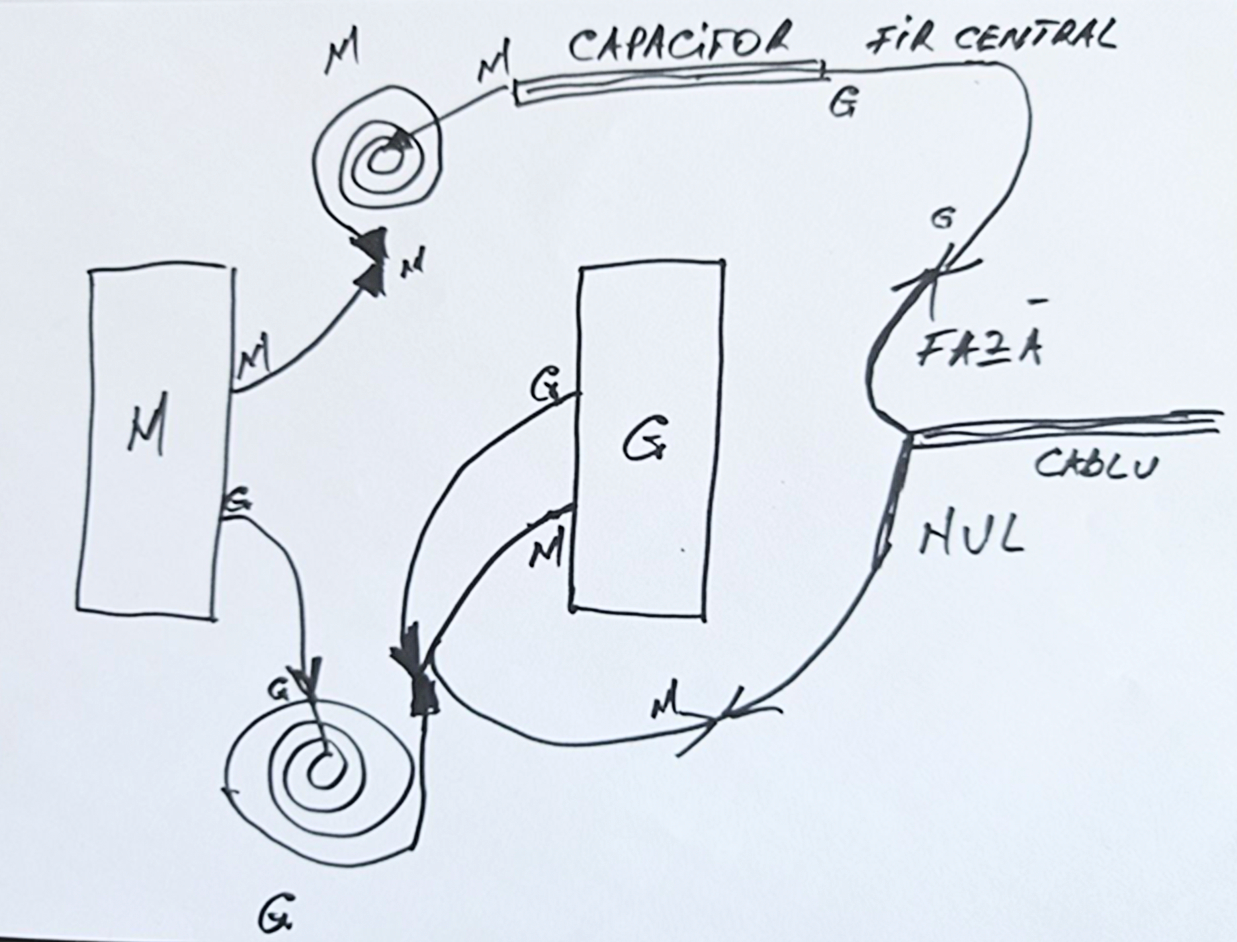 M
M
CAPACiTOR
FiR CENTRAL
G
G
M
M
G
FAZĀ
M
G
CABLU
G
M
NUL
G
M
G